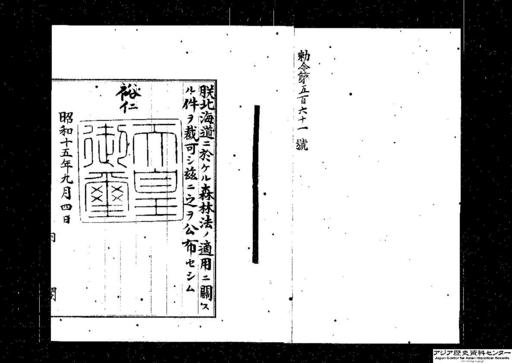 勅令第五百六十一號
朕北海道ニ於ケル森林法ノ適用ニ關ス
ル件ヲ裁可シ茲ニ之ヲ公布セシム
裕仁
天皇
御璽
昭和十五年九月四日
アジア歴史資料センター
Japan Center for Asian Historical Records